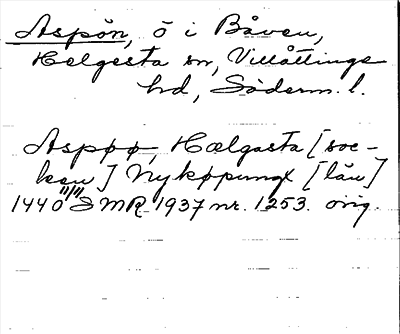 Aspön, ö i Båven,
Helgesta sn, Villåttinge
hd, Söderm. l.
Aspøø, Hælgasta [soc-
ken] Nykøpungx [län]
1440 11/11 SMR 1937 nr. 1253. orig.